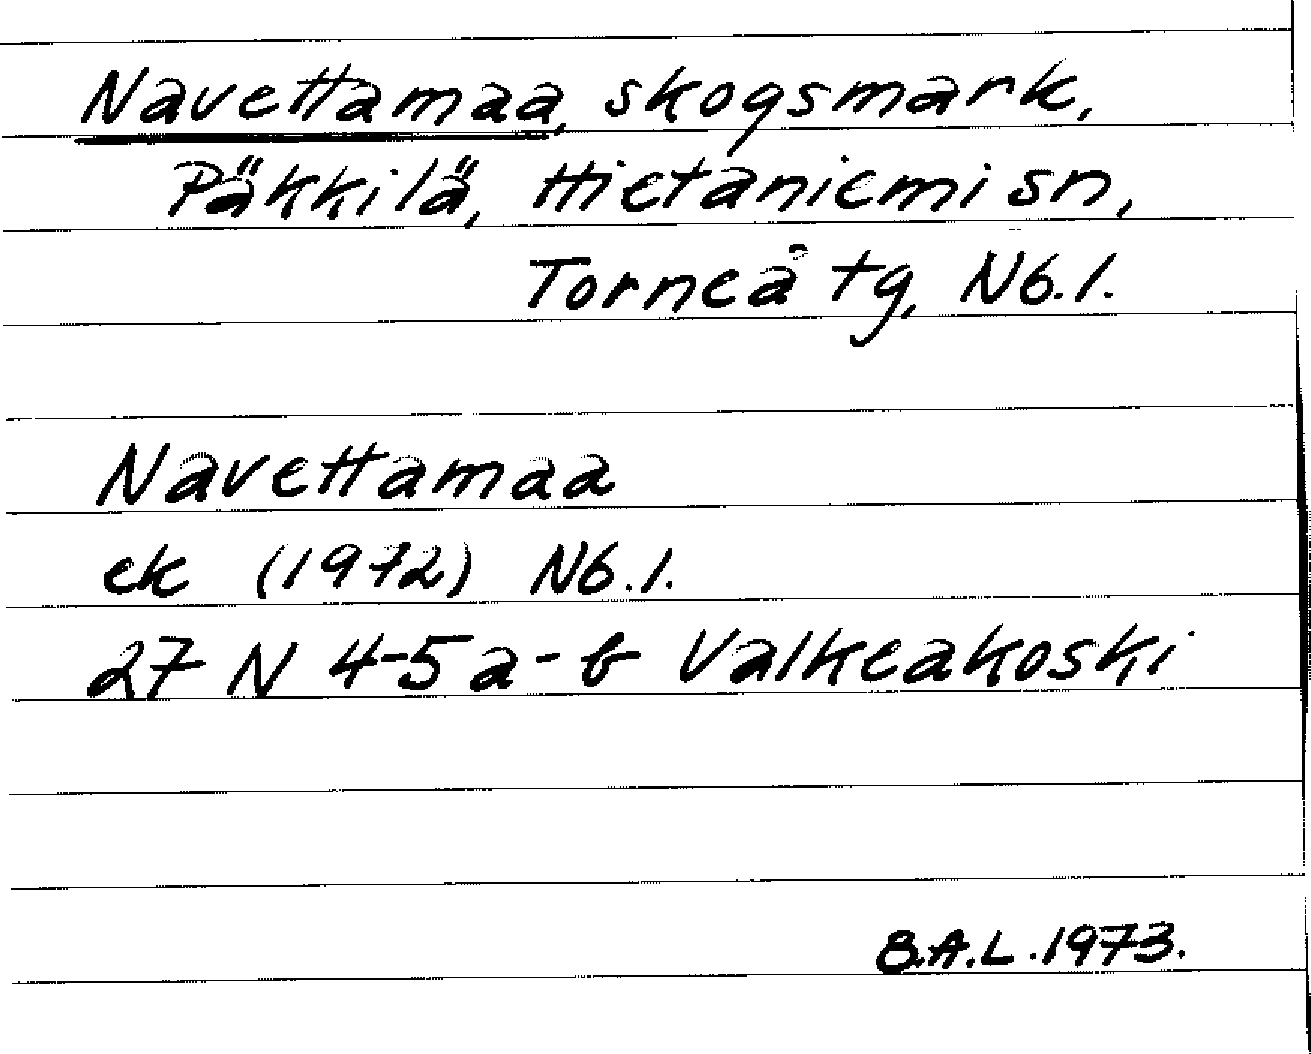 Navettamaa, skogsmark,
Päkkilä, Hietaniemi sn,
Torneå tg, N6.1.
Navettamaa
ek (1972) N6.1.
27 N 4-5 a-b Valkeakoski
B.A.L. 1973.